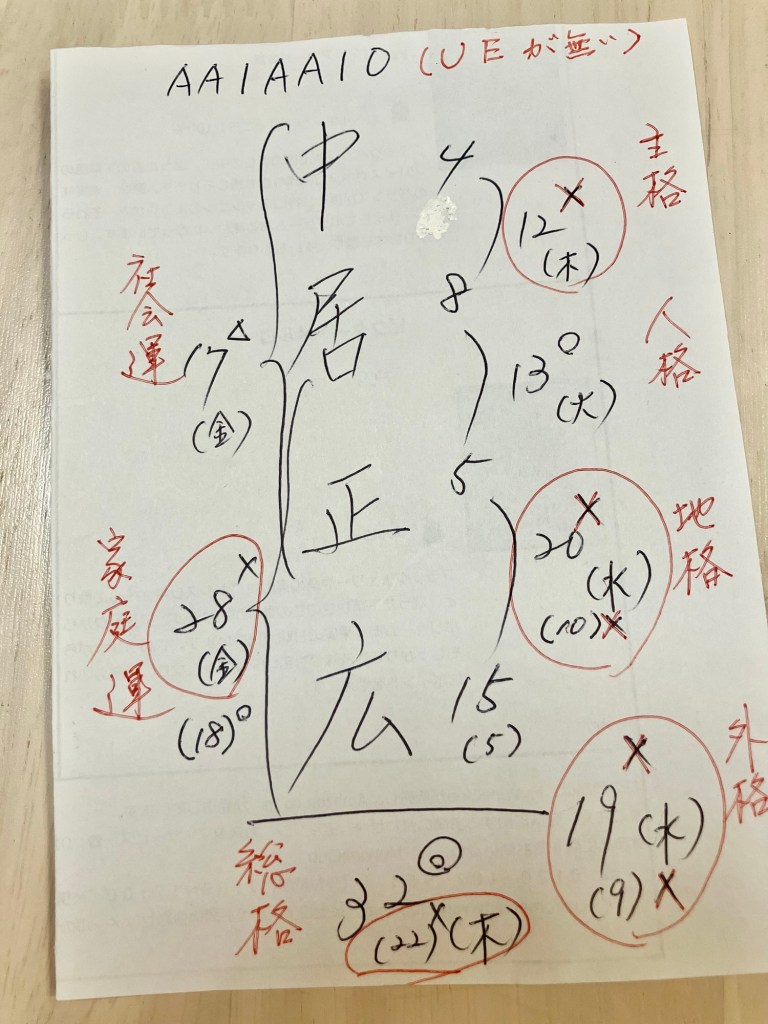 AAIAAIO (UEが無い)
主格
中 4
12× (木)
社会運
17△ (金)
居 8
人格
13○ (火)
正 5
地格
20× (水)
(10)×
家庭運
28× (金)
(18)○
広 15
(5)
外格
× 19 (水)
(9)×
総格
32◎
(22)× (木)